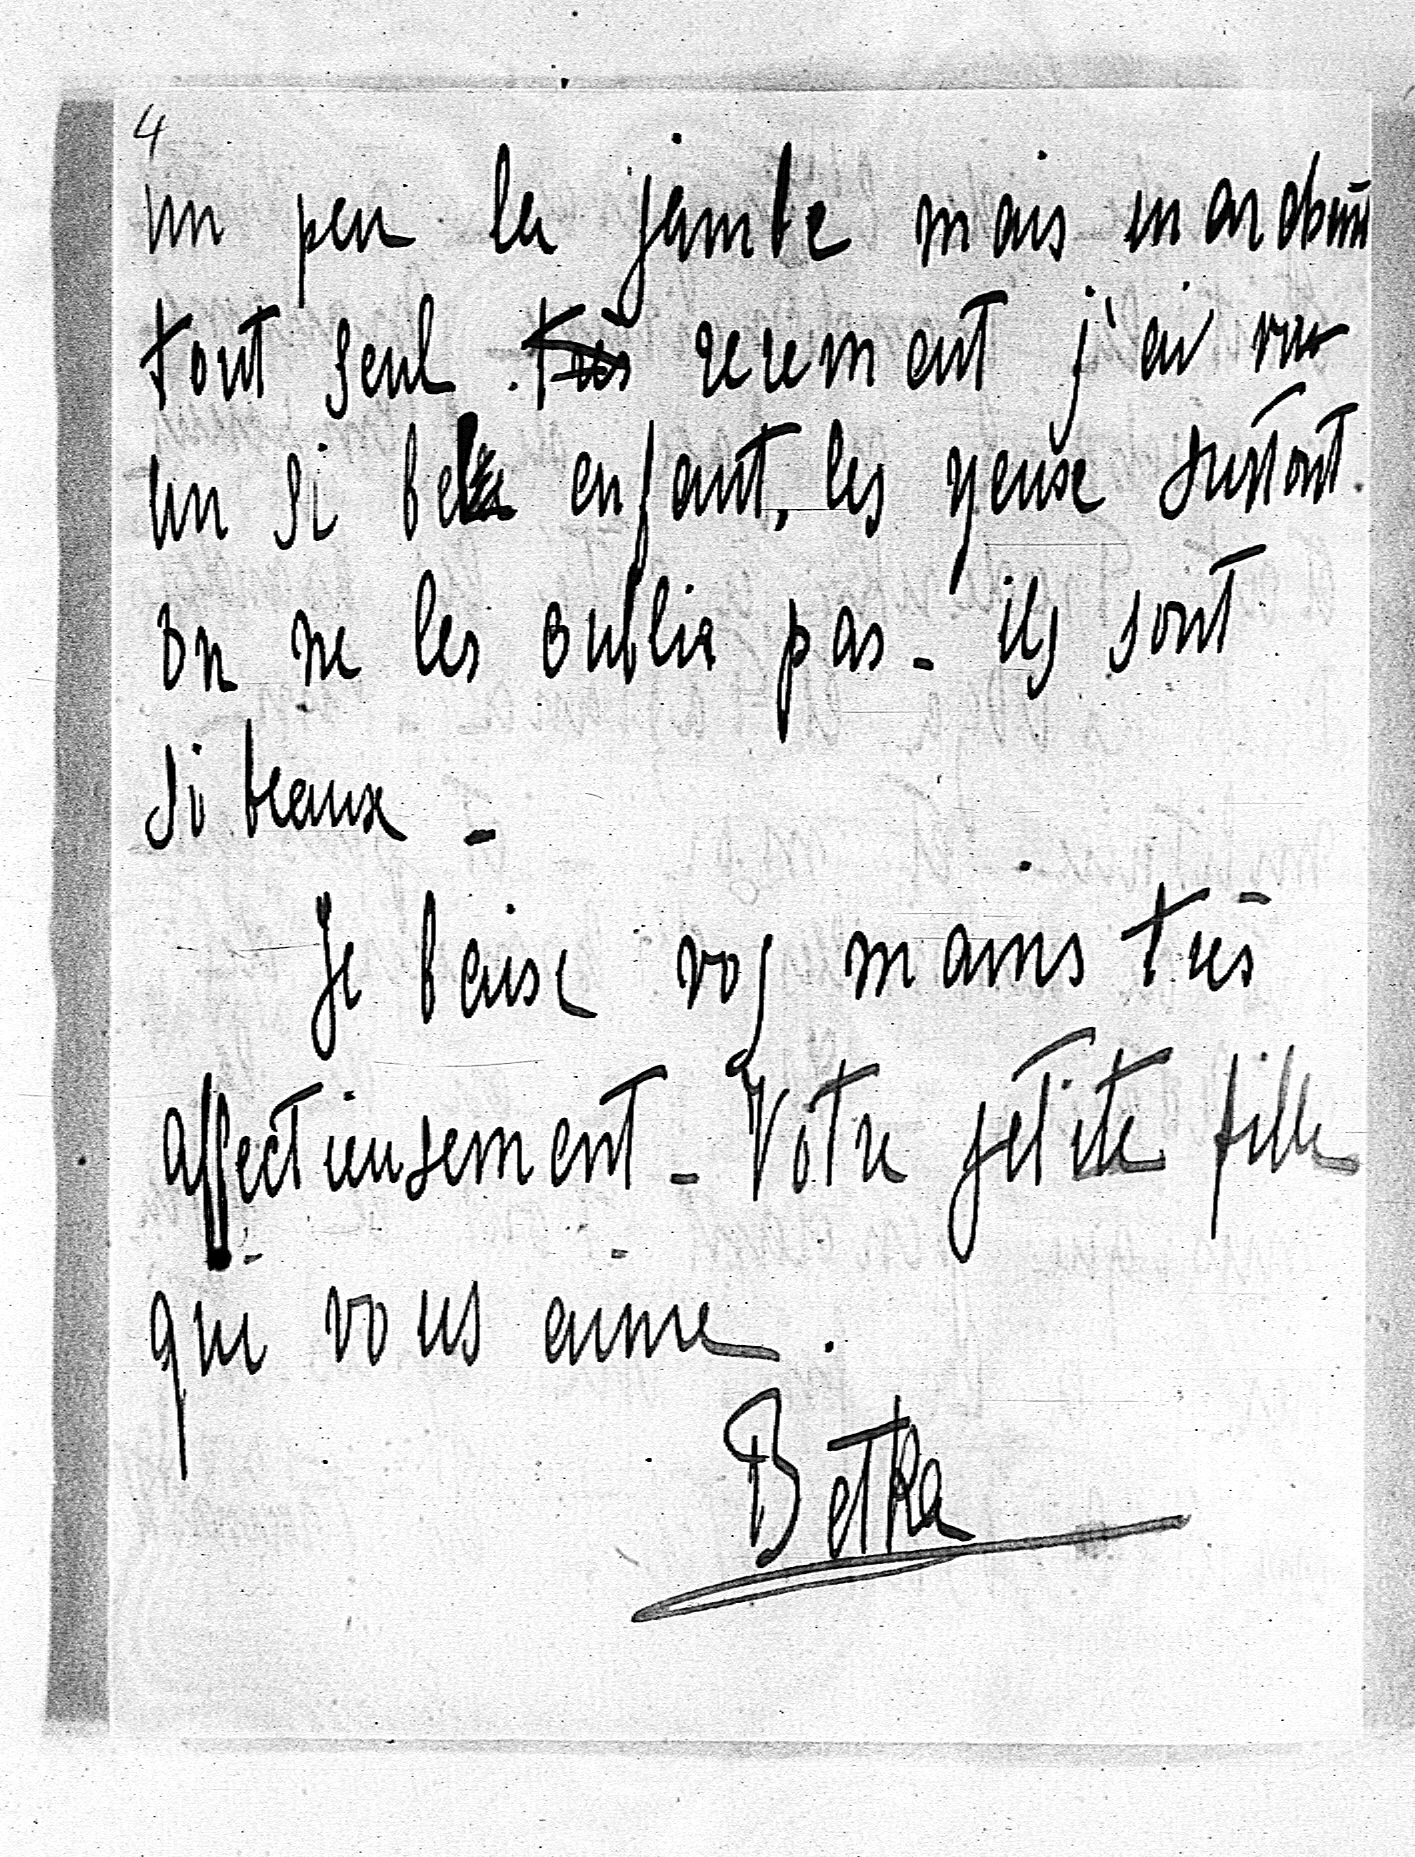 4
un peu la jambe mais
tout seul. ~~très~~ rarement j'ai vu
un si bel enfant, les yeux surtout.
on ne les oublia pas - ils sont
si beaux -
Je baise vos mains très
affectieusement - Votre petite fille
qui vous aime.
Betka